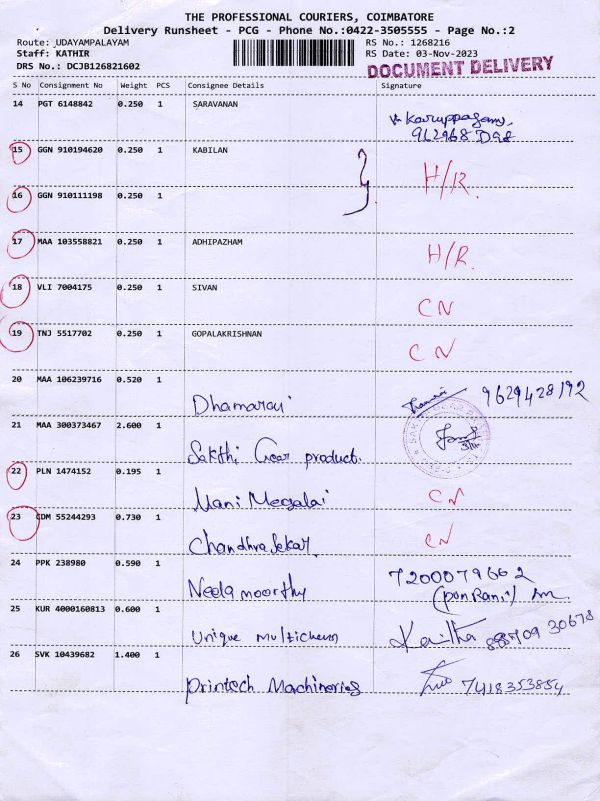 THE PROFESSIONAL COURIERS, COIMBATORE
Delivery Runsheet - PCG - Phone No.:0422-3505555 - Page No.:2
Route: UDAYAMPALAYAM RS No.: 1268216
Staff: KATHIR RS Date: 03-Nov-2023
DRS No.: DCJB126821602 DOCUMENT DELIVERY
S No Consignment No Weight PCS Consignee Details Signature
14 PGT 6148842 0.250 1 SARAVANAN
15 GGN 910194620 0.250 1 KABILAN H/R.
16 GGN 910111198 0.250 1
17 MAA 103558821 0.250 1 ADHIPAZHAM H/R.
18 VLI 7004175 0.250 1 SIVAN CN
19 TNJ 5517702 0.250 1 GOPALAKRISHNAN CN
20 MAA 106239716 0.520 1 Dhamaravi
21 MAA 300373467 2.600 1 Sakthi Gear product.
22 PLN 1474152 0.195 1 Mani Megalai CN
23 CDM 55244293 0.730 1 Chandhra Sekar. CN
24 PPK 238980 0.590 1 Neela moorthy 7200079662
25 KUR 4000160813 0.600 1 Unique multichem
26 SVK 10439682 1.400 1 Printech Machineries 7418353854